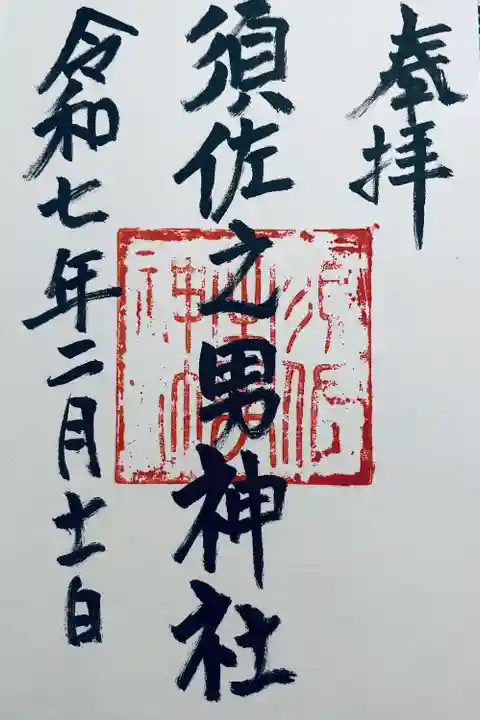 奉拝
須佐之男神社
令和七年二月十一日